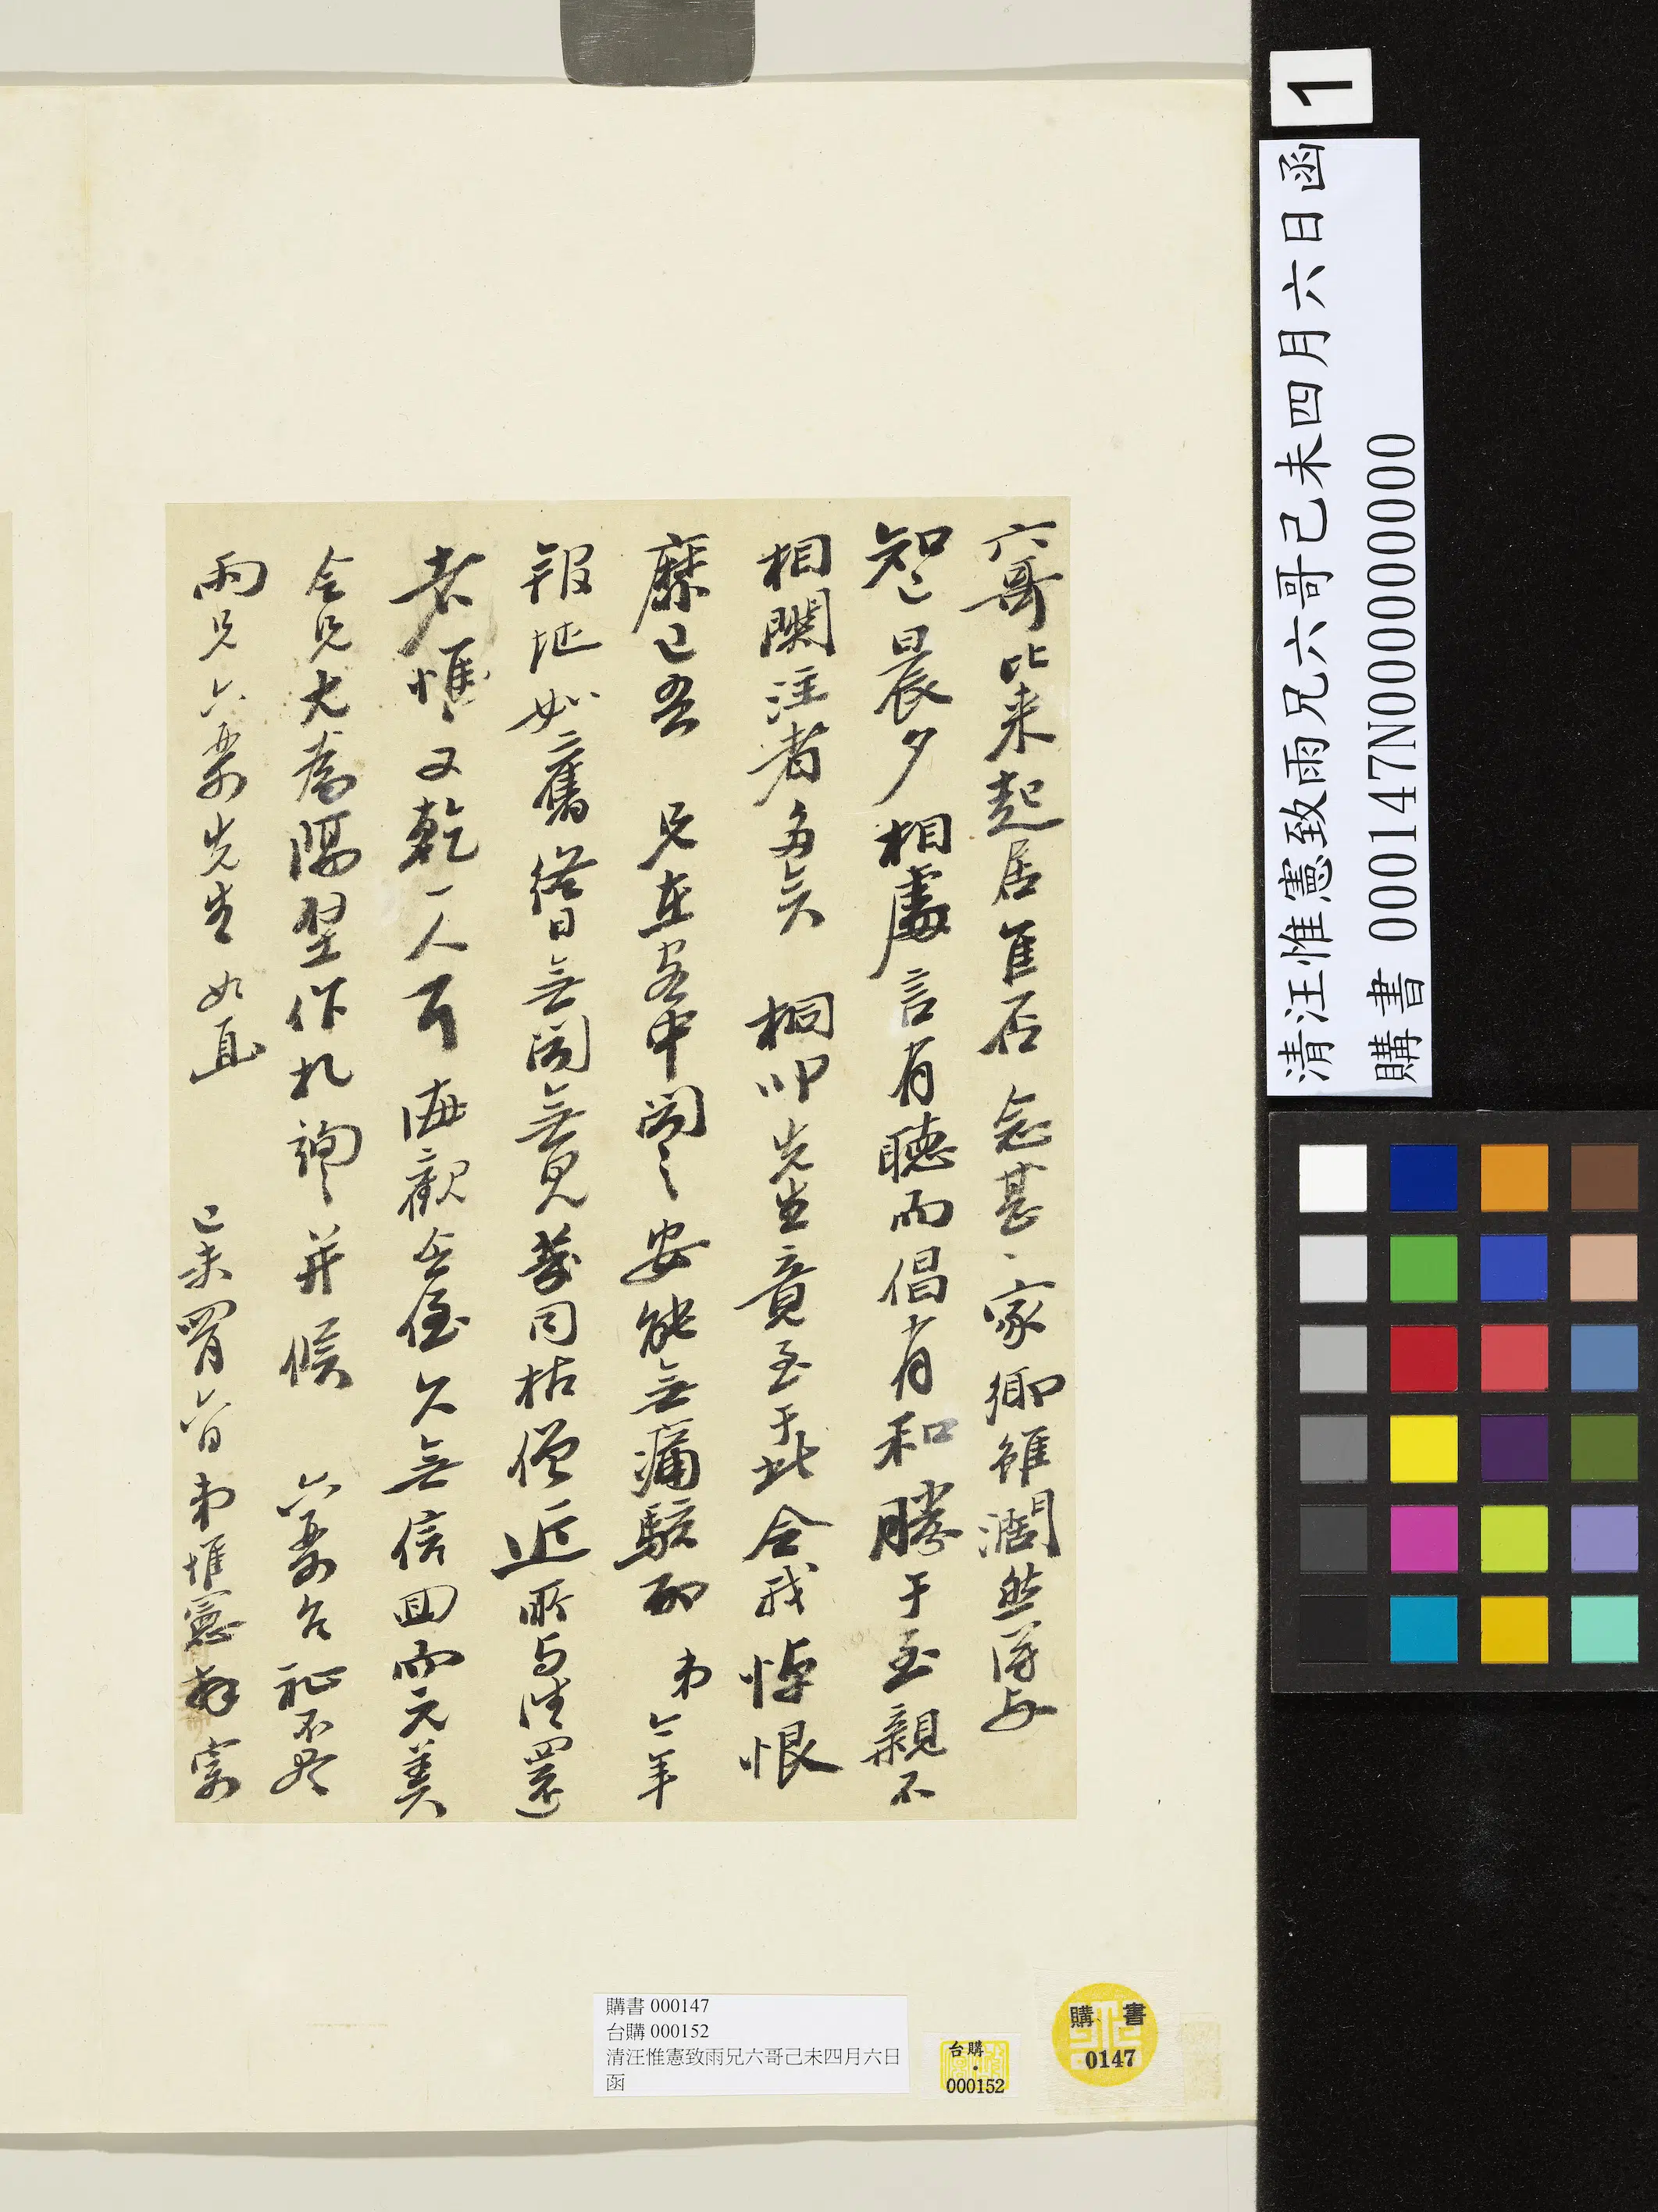 六哥比来起居隹否念甚〻家鄉雖濶然得如
知己晨夕相處言有聽而倡有和勝于至親不
相關注者多矣 桐叩先生竟至于此令我悼恨
靡已吾 兄在客中聞之安能無痛駭耶 弟今年
報地如舊終日無聞無見若同枯僧近所与往還
老惟又乾一人耳 海觀企廬久無信回而元美
令兄尤為隔塱作札詢之并候 六哥台祉不盡
雨兄六哥先生 如面 己未四月六日弟惟憲拜寄
1
清汪惟憲致雨兄六哥己未四月六日函
購書 000147N000000000
購書 000147
台購 000152
清汪惟憲致雨兄六哥己未四月六日
函
台購
000152
購書
0147